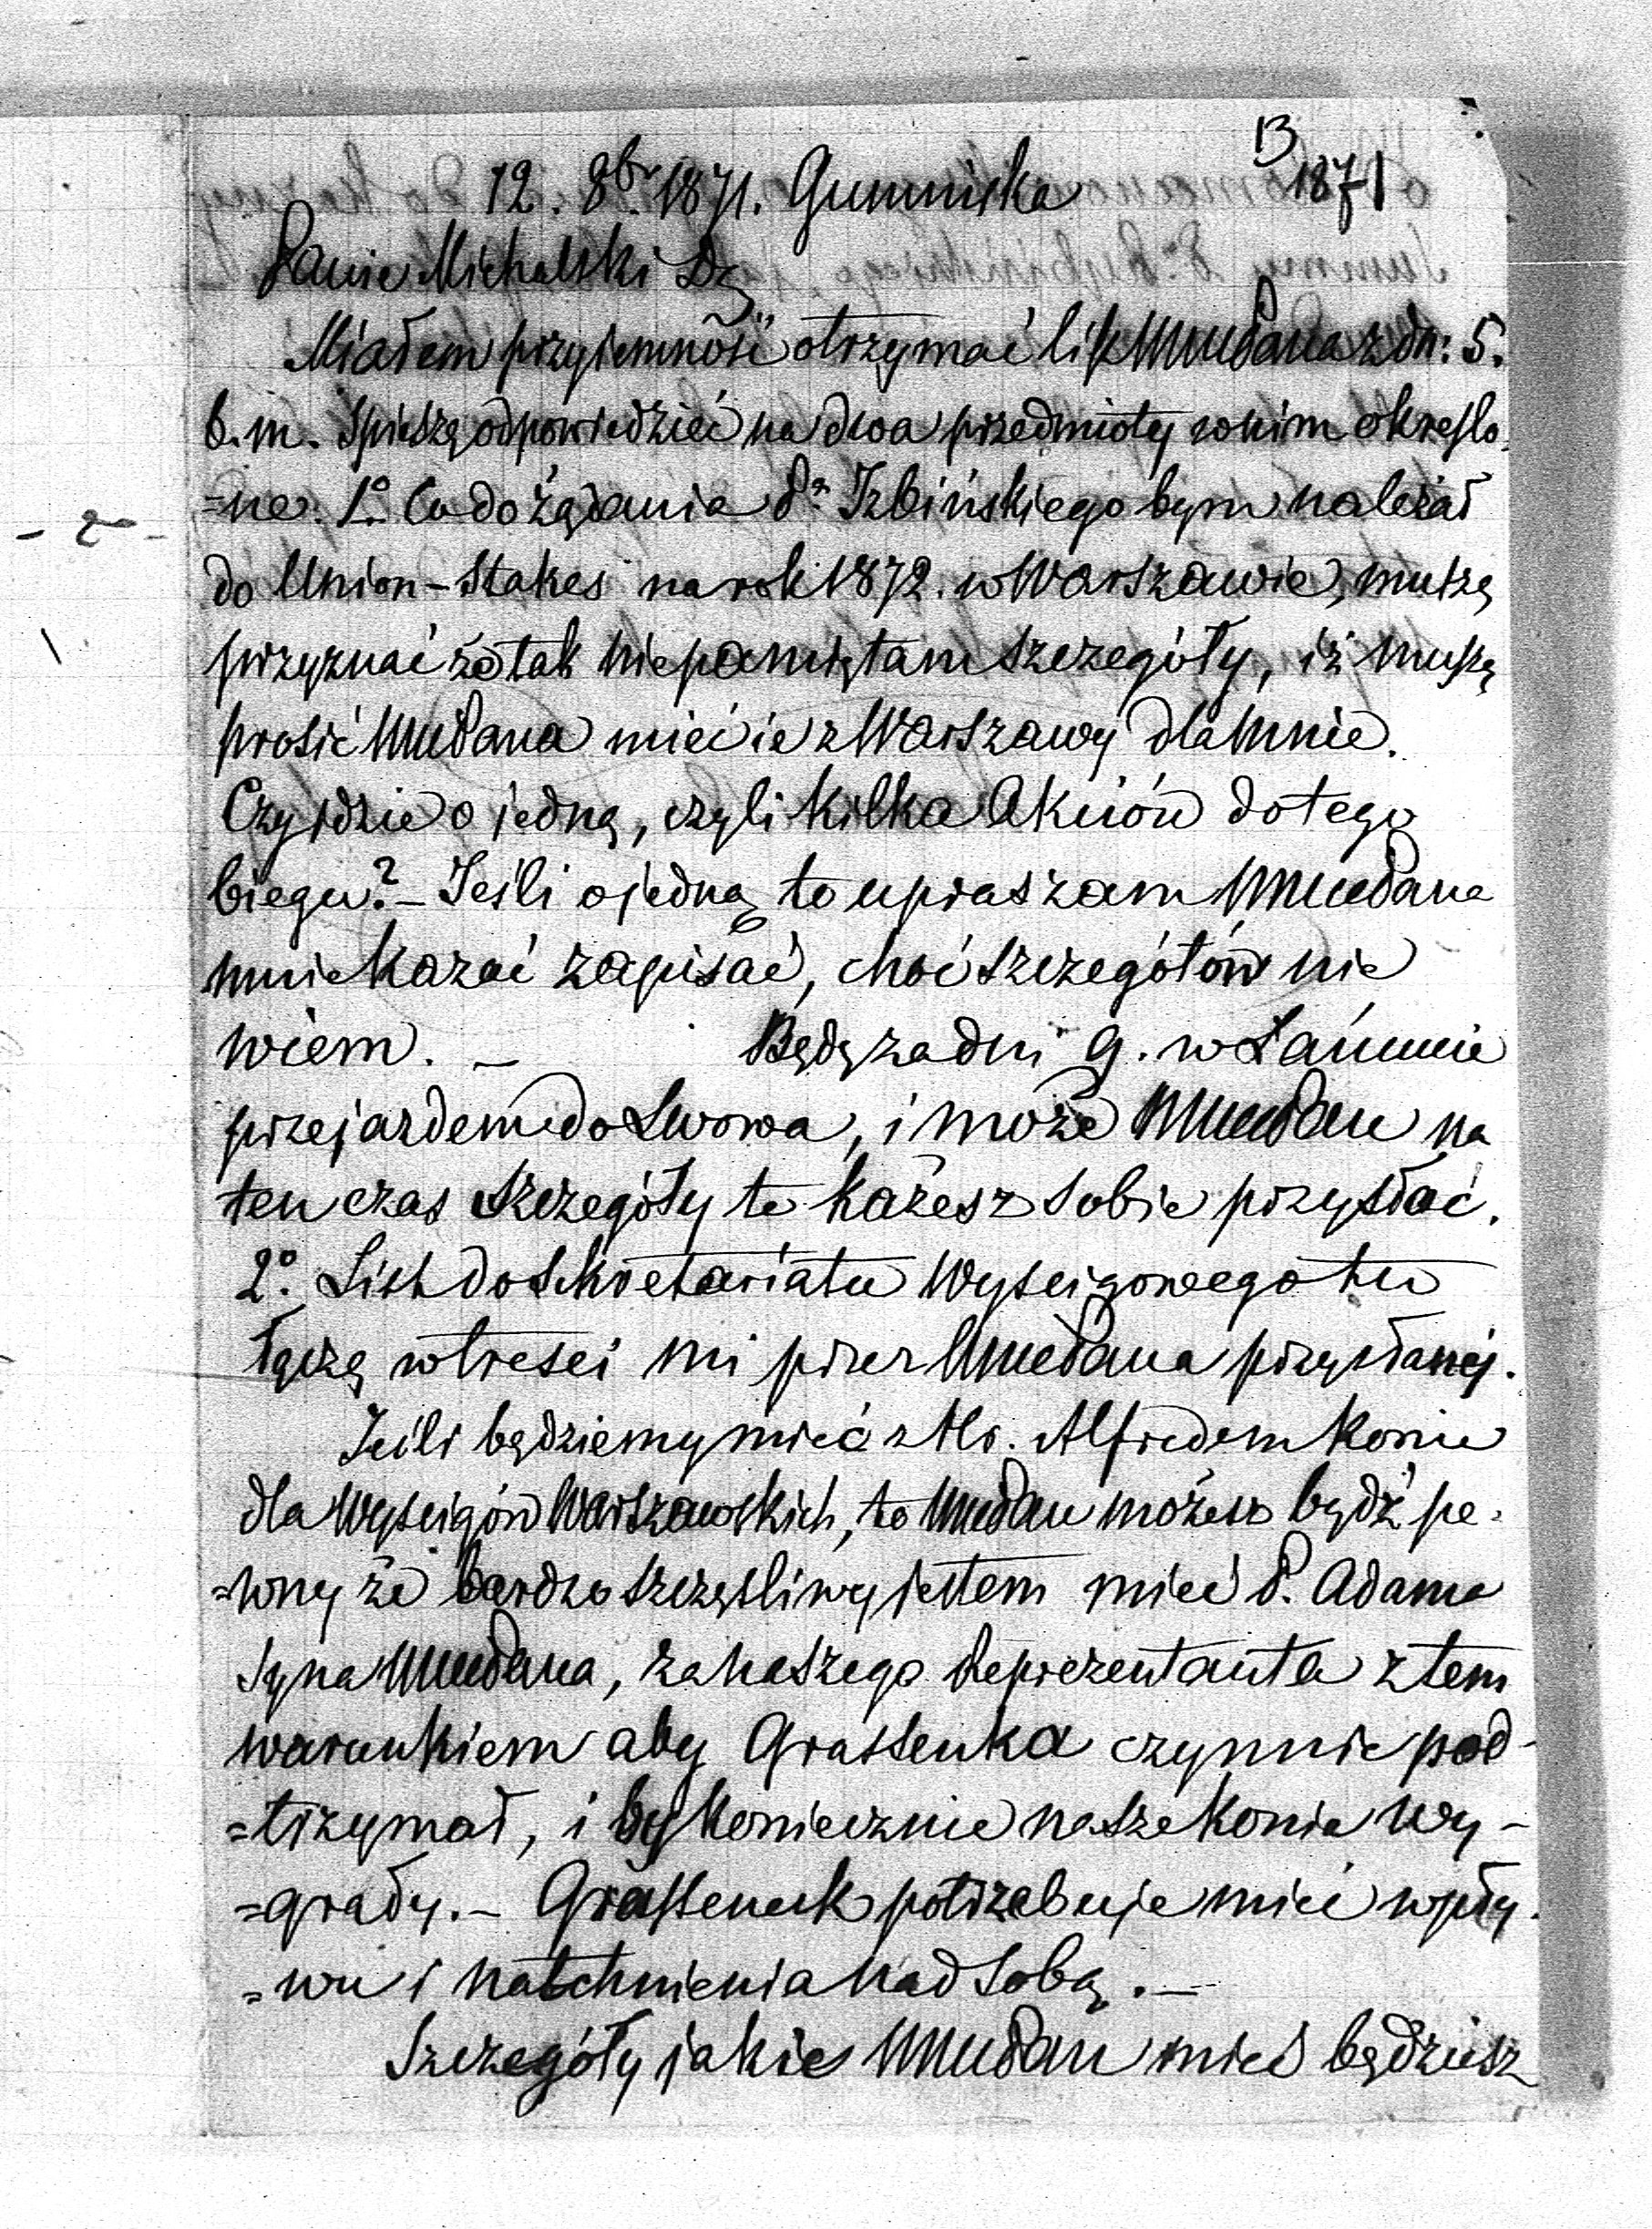 13
12. 8br 1871. Gumniska 1871
Panie Michalski Dz
Miałem przyjemność otrzymać list WmcPana z dn: 5.
b. m. Spieszę odpowiedzieć na dwa przedmioty w nim okreslo=
=ne. 1º Co do żądania Pa Izbińskiego bym należał
do Union-Stakes na rok 1872. w Warszawie, muszę
przyznać że tak niepamiętam szczegóły, iż muszę
prosić WmcPana mieć ie z Warszawy dla mnie.
Czy idzie o jedną, czyli kilka Akcióu do tego
biegu? – Jeśli o jedną to upraszam WmcPana
mnie kazać zapisać, choć szczegółów nie
wiem. – Będę za dni 9. w Łańcucie
przejazdem do Lwowa, i może WmcPan na
ten czas szczegóły te każesz sobie przysłać.
2º. List do Sekretariatu Wyscigowego tu
łączę w tresci mi przez WmcPana przysłanéj.
Jeśli będziemy mieć z Hr. Alfredem konie
dla Wyscigów Warszawskich, to WmcPan możesz bydź pe=
=wny że bardzo szczęsliwy jestem mieć P. Adama
syna WmcPana, za naszego Reprezentanta z tem
warunkiem aby Grassenka czynnie pod-
=trzymał, i by koniecznie nasze konie wy-
=grały. – Grassenek potrzebuje mieć wpły-
=wu i natchnienia nad sobą. –
Szczegóły jakie WmcPan mieć będziesz
- 2 -